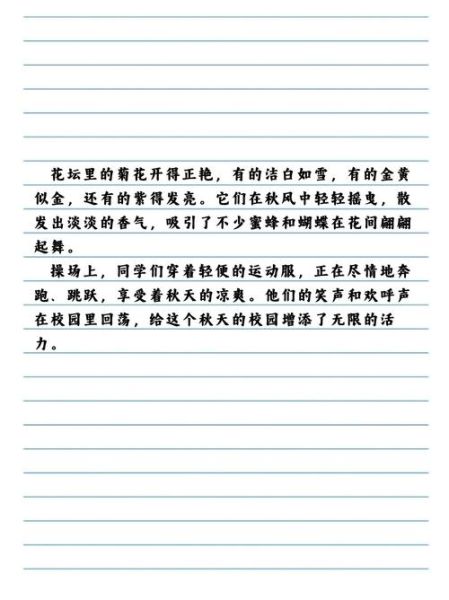 花坛里的菊花开得正艳，有的洁白如雪，有的金黄
似金，还有的紫得发亮。它们在秋风中轻轻摇曳，散
发出淡淡的香气，吸引了不少蜜蜂和蝴蝶在花间翩翩
起舞。
操场上，同学们穿着轻便的运动服，正在尽情地奔
跑、跳跃，享受着秋天的凉爽。他们的笑声和欢呼声
在校园里回荡，给这个秋天的校园增添了无限的活
力。